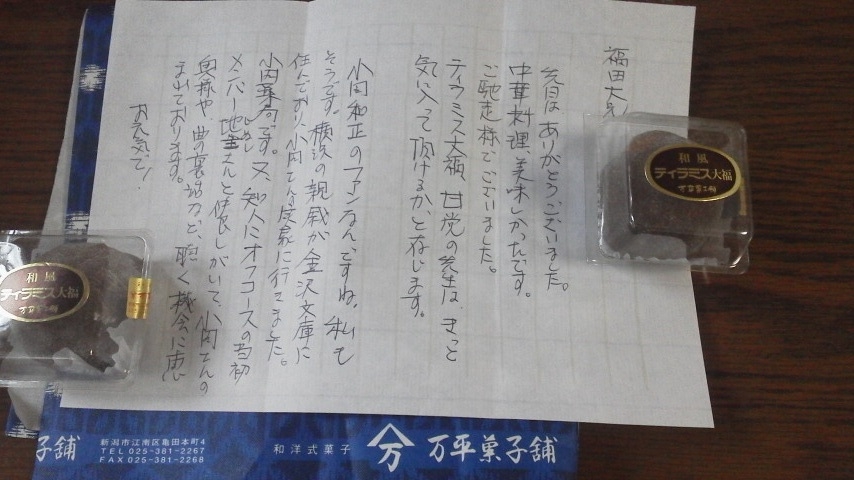 福田大
先日は ありがとうございました。
中華料理、美味しかったです。
ご馳走様でございました。
ティラミス大福、甘党の先生は、きっと
気に入って頂けるか、と存じます。
小田和正のファンなんですね。私も
そうです。横浜の親戚が金沢文庫に
住んでおり、小田さんの実家に行きました。
小田薬局です。又、知人にオフコースの当初
メンバー地主さんと仲良しがいて、小田さんの
奥様や曲の裏話など、聴く機会に恵
まれております。
お元気で!
和風
ティラミス大福
和風
ティラミス大福
子舗
新潟市江南区亀田本町4
TEL 025-381-2267
FAX 025-381-2268
和洋式菓子
万
万平菓子舗